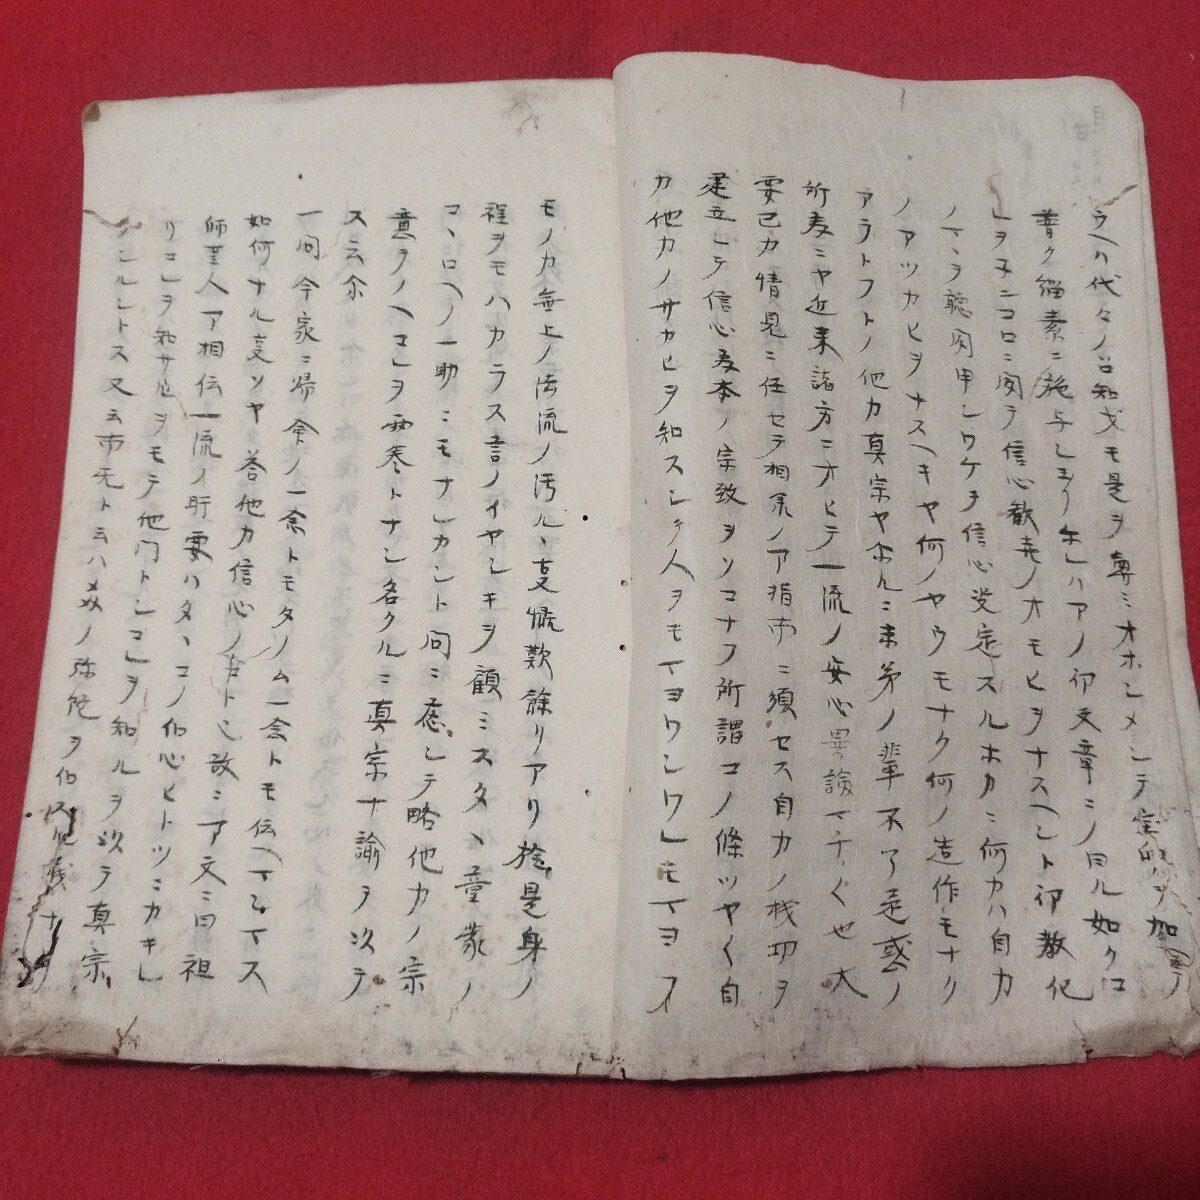 ウヘハ代々ノ善知識モ是ヲ専ミオホシメシテ定 ヲ加ヘラ
普ク緇素ニ施与シ玉ヘリ尓レハアノ御文章ニノ曰ル如クロ
レヲ子ンコロニ聞テ信心歓喜ノオモヒヲナスヘシト御教化
ノマヽヲ聴聞申シワケテ信心決定スルホカニ何カハ自力
ノアツカヒヲナスヘキヤ何ノヤウモナク何ノ造作モナク
アラトフトノ他力真宗ヤ尓ルニ末弟ノ輩不了迷惑ノ
所為ミヤ近来諸方ニオヒテ一流ノ安心異論マチ〱也大
要己カ情見ニ任セテ相承ノア指南ニ須セス自力ノ機功ヲ
建立シテ信心為本ノ宗致ヲソコナフ所謂コノ條ツヤ〱自
力他力ノサカヒヲ知スシテ人ヲモマヨワシワレモマヨフ
モノカ無上ノ法流ノ汚ルヽ支慨歎餘リアリ於是身ノ
程ヲモハカラス言ノイヤシキヲ顧ミスタヽ童蒙ノ
コヽロヘノ一助ニモナレカシト問ニ応シテ略他力ノ宗
意ヲノヘコレヲ両巻トナシ名クルニ真宗 諭ヲ以テ
ス云尓
一問今家ニ帰命ノ一念トモタノム一念トモ伝ヘマシマス
如何ナル支ソヤ答他力信心ノ支ト心 故ニア文ニ曰祖
師聖人ア相伝一流ノ肝要ハタヽコノ信心ヒトツニカキレ
リコレヲ知サルヲモテ他門トシコレヲ知ルヲ以テ真宗
ノシルシトス又云南无トミハ ノ弥陀ヲ ナヲ